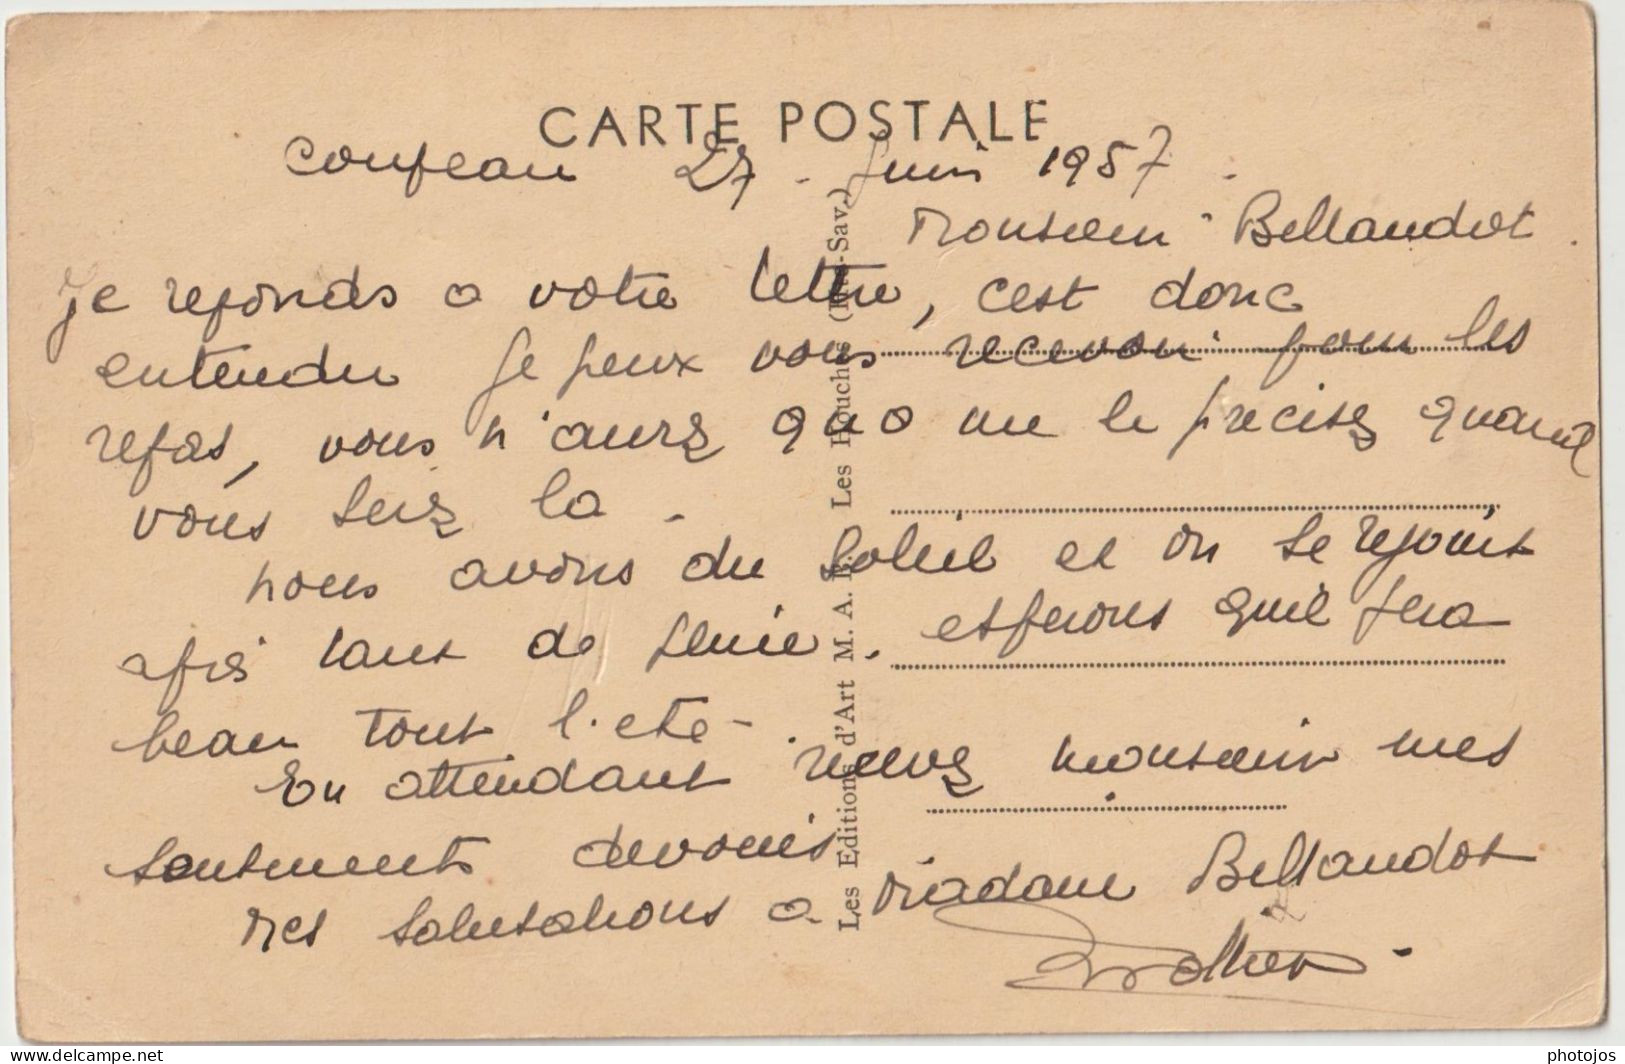 CARTE POSTALE
Coupeau 27 Juin 1957.
Monsieur Bellaudot.
Je reponds a votre lettre, cest donc
entendu Je peux vous recevoir pour les
repas, vous n'aurez qua me le precisez quand
vous serez la.
nous avons du soleil et on se rejouit
apres tant de pluie. esperons quil fera
beau tout l'eté.
En attendant recevez monsieur mes
sentiments devoués
Mes salutations a Madame Bellaudot
Les Editions d'Art M. A. B. Les Houches (Hte-Sav.)
www.delcampe.net
photojos